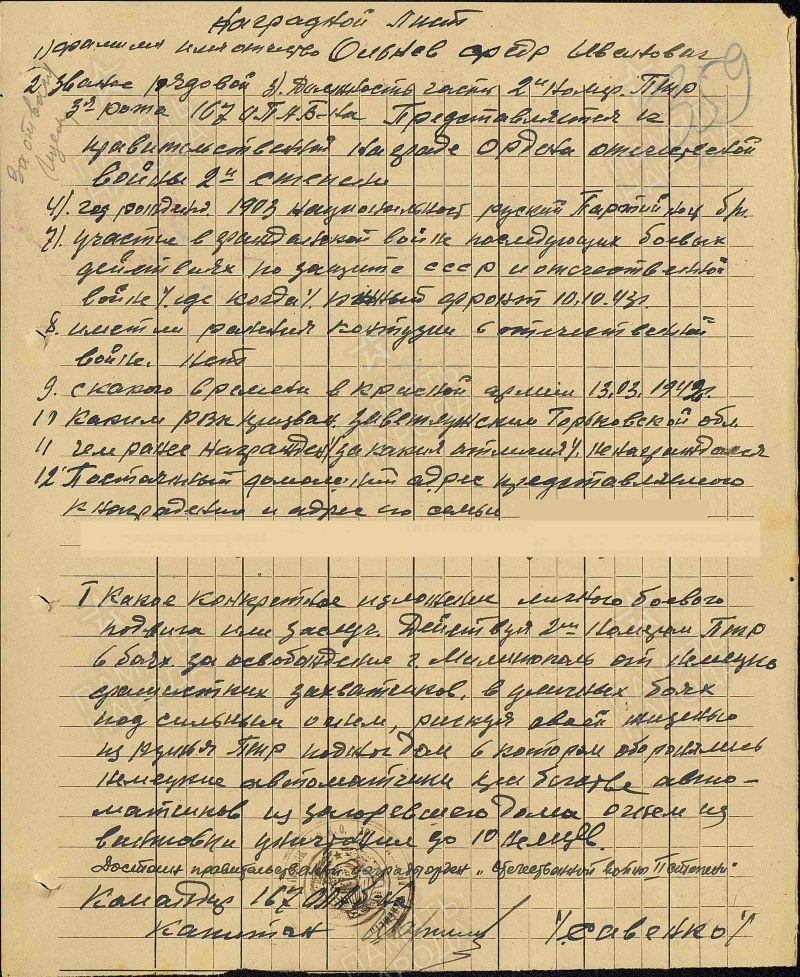 Наградной лист
1) фамилия имя отчество Ольнев Фёдр Иванович
2. Звание рядовой 3). Должность часть 2й номер ПТР
3й рота 167 ОПАБ-на Представляется к
правительственной награде Ордена отечественой
войны 2й степени
4). год рождения 1903 национальност руский Партийност б/п.
7). участие в гражданской войне последующих боевых
действиях по защите СССР и отечественной
войне /. где когда /. южный фронт 10.10.43г.
8. имет ли ранения контузии в отечественной
войне. нет
9. с какого времени в красной армии 13.03.1942г.
10 каким РВК призван. Заветлужским Горьковской обл.
11 чем ранее награжден /за какия отличия/. не награждался
12 Постоянный домашний адрес представляемого
к награждению и адрес его семьи
I Какое конкретное изложение личного боевого
подвига или заслуг. Действуя 2м номером ПТР
в боях за освобождение г. Мелитополь от немецко
фашистких захватчиков. в уличных боях
под сильным огнем, рискуя своей жизнью
из ружья ПТР поджог дом в котором оборонялись
немецкие автоматчики при бегстве авто-
матчиков из загоревшего дома огнем из
винтовки уничтожил до 10 немцев.
Достоин правительственной награды орден „Отечественной войны II степени"
Командир 167 ОПАБ-на
Капитан /Савенко/
За отвагу
359